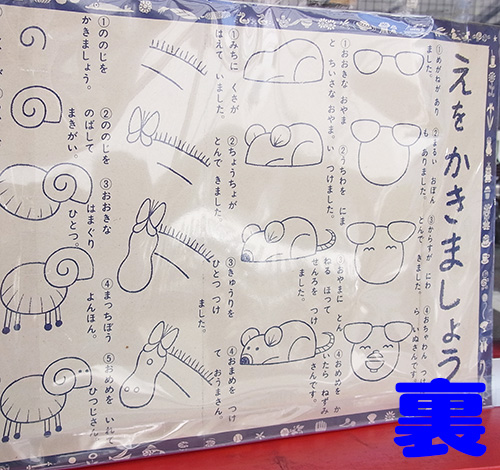 えを かきましょう
①めがねが あり
ました。
②まるい おぼん
も ありました。
③からすが にわ
とんで きました。
④おちゃわん つけ
ら いぬさんです。
①おおきな おやま
と ちいさな おやま。
②うちわを にま
い つけました。
③おやまに とん
ねる ほって
せんろを つけ
ました。
④おめめを か
いたら ねずみ
さんです。
①みちに くさが
はえて いました。
②ちょうちょが
とんで きました。
③きゅうりを
ひとつ つけ
ました。
④おまめを つけ
て おうまさん。
①ののじを
かきましょう。
②ののじを
のばして
まきがい。
③おおきな
はまぐり
ひとつ。
④まっちぼう
よんほん。
⑤おめめを いれて
ひつじさん
裏